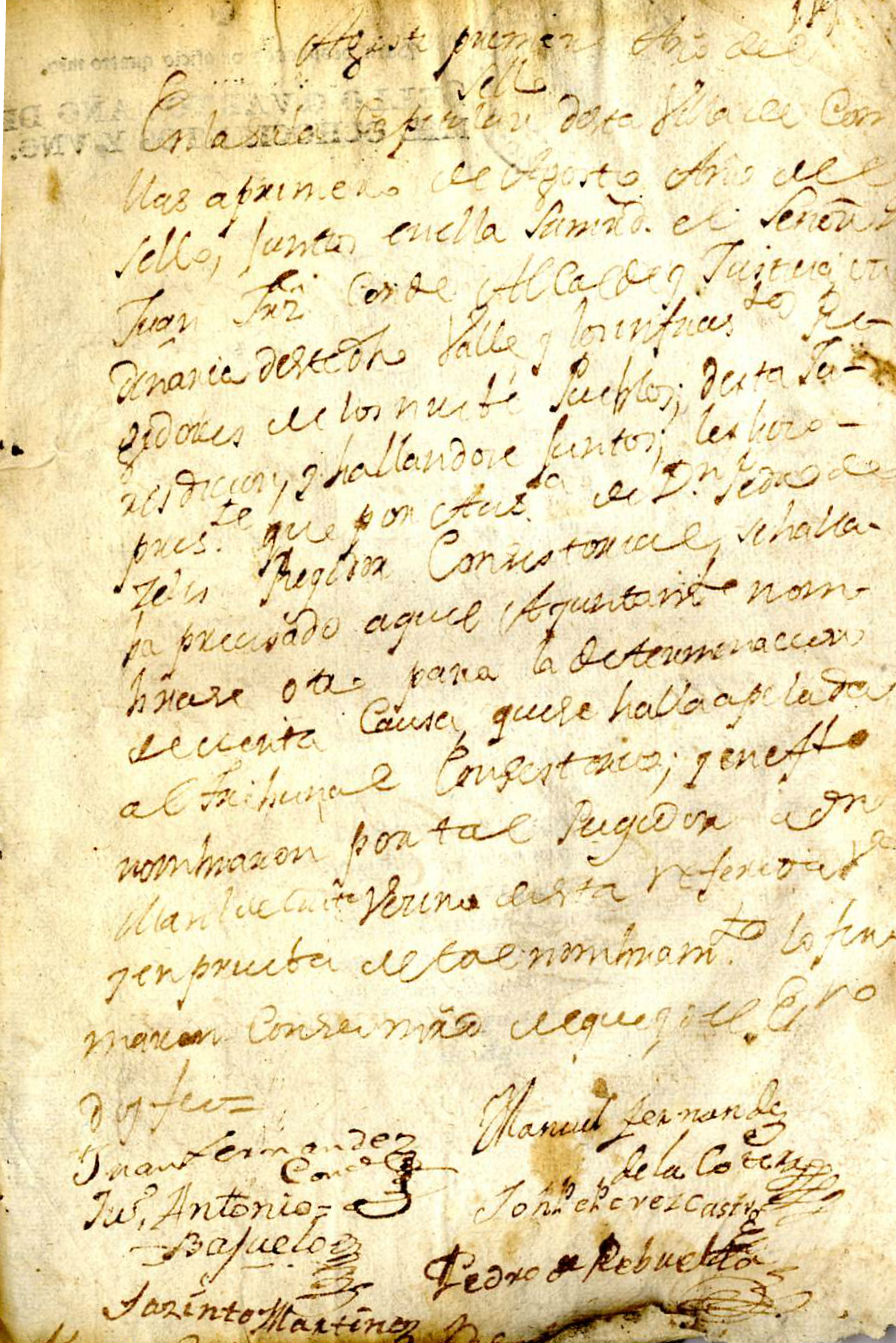 Agosto primero Año del
Sello
En la sala Capitular desta Villa de Com
llas a primero de Agosto Año del
sello, Juntos en ella su mrd. el Señor
Juan Frnz Conde Alcalde y Justicia or
dinaria deste dho Valle y los infraes.tos Re-
gidores de los nuebe Pueblos, desta Ju-
resdicion, y hallandose Juntos, les hizo
pres.te que por Aus.a de Dn Pedro de
Zelis Regidor Consistorial, se halla-
ba precisado aquel Ayuntamto nom-
brase otro para la determinacion
de cierta Causa, que se halla apelada
al Tribunal Consistorial; y en efto
nombraron por tal Regidor a Dn
Man.l de Vezino desta referida Va
y en prueba de tal nombram.to lo fir-
maron Con su mrd de que yo el Esno
doy fee=
Juan Fernandez
Conde
Manuel fernandez
de la Cotera
Ju.o Antonio
Bajuelo
Joh.ph Perez Castro
Pedro de Rebuelta
Jazinto Martinez